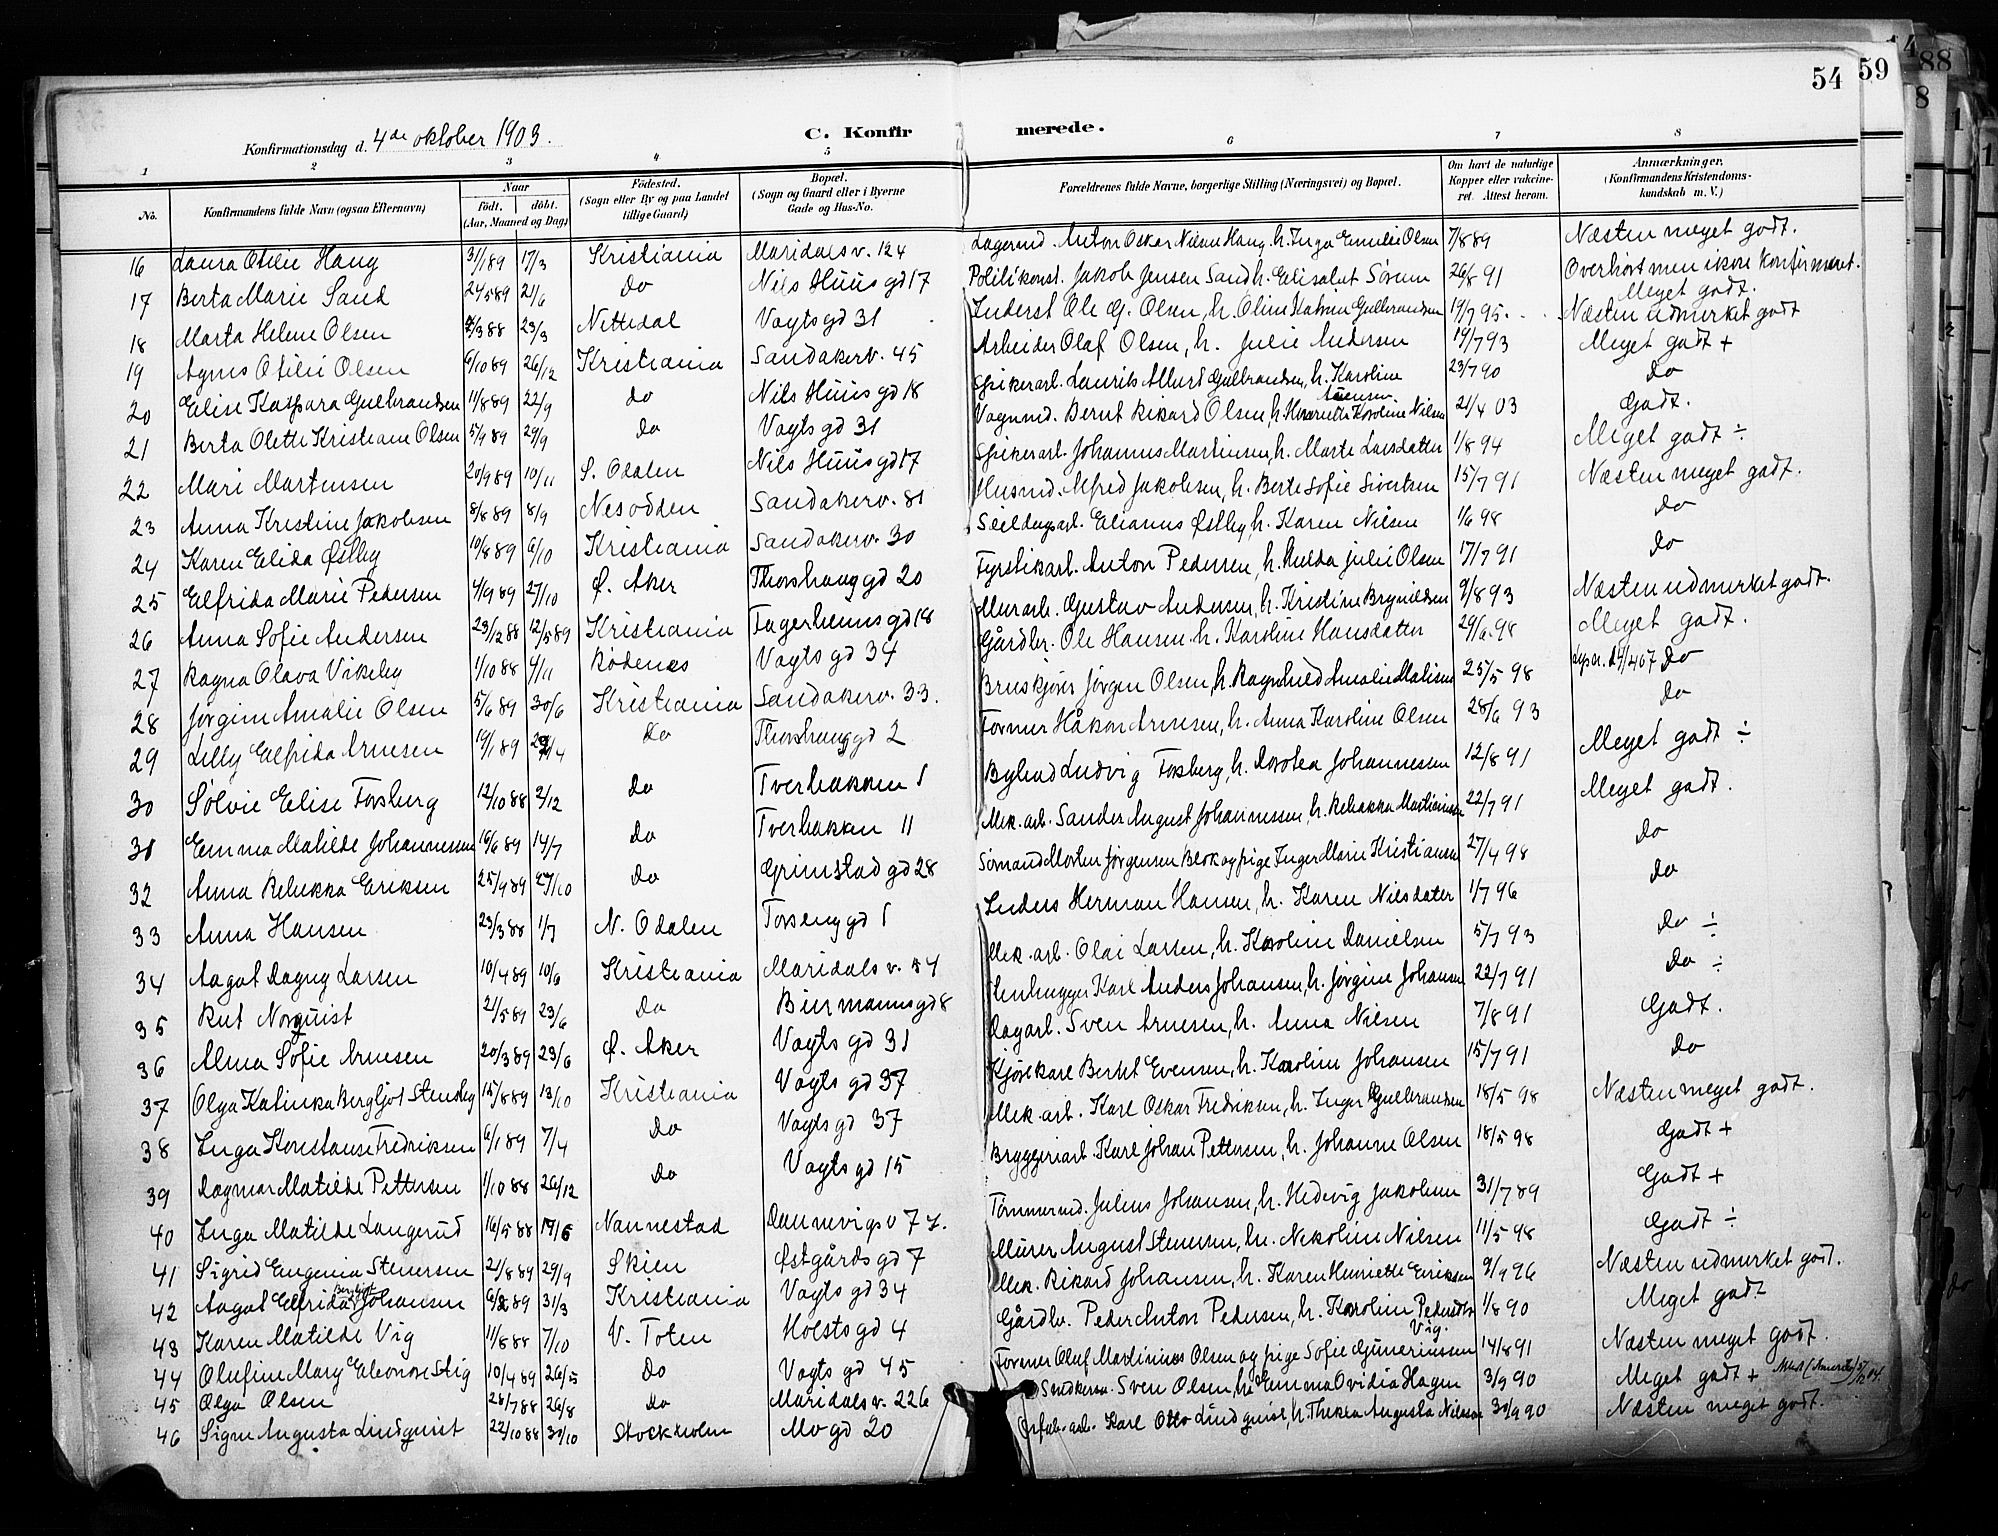 54 59 88
8
Konfirmationsdag d. 4de oktober 1903.
C. Konfirmerede.
1 2 3 4 5 6 7 8
No. Konfirmandens fulde Navn (ogsaa Efternavn) Naar født. døbt. (Aar, Maaned og Dag) Fødested. (Sogn eller By og paa Landet tillige Gaard) Bopæl. (Sogn og Gaard eller i Byerne Gade og Hus-No. Forældrenes fulde Navne, borgerlige Stilling (Næringsvei) og Bopæl. Om havt de naturlige Kopper eller vaccineret. Attest herom. Anmærkninger. (Konfirmandens Kristendomskundskab m. V.)
16 Laura Otilie Haug 31/1 89 17/3 Kristiania Maridalsv. 124 Lagermd. Anton Oskar Nilsen Haug, h. Inga Emilie Olsen 7/8 89 Næsten meget godt.
17 Berta Marie Sand 24/5 89 21/6 Do Nils Huus gd 17 Politikonst. Jakob Jensen Sand h. Elisabet Sørum 26/8 91 Overhørt men ikke konfirmeret. Meget godt.
18 Marta Helene Olsen 3 88 23/3 Nittedal Vogts gd 31 Inderst Ole G. Olsen, h. Oline Katrine Gulbrandsen 19/7 95. Næsten udmerket godt
19 Agnes Otilie Olsen 6/10 89 26/12 Kristiania Sandakerv. 45 Arbeider Olaf Olsen, h. Julie Andersen 19/7 93 Meget godt +
20 Elise Kaspara Gulbrandsen 11/8 89 22/9 do Nils Huus gd 18 Spikerarb. Laurits Albert Gulbrandsen, h. Karoline 23/7 90 Do
21 Berta Olette Kristiane Olsen 5/9 89 29/9 do Vogts gd 31 Vognmd. Bernt Rikard Olsen, h. Henriette Karoline Nilsen 21/4 03 Godt.
22 Mari Martinsen 20/9 89 10/11 S. Odalen Nils Huus gd 17 Spikerarb. Johannes Martinsen, h. Marte Larsdatter 1/8 94 Meget godt ÷
23 Anna Kristine Jakobsen 8/8 89 8/9 Nesodden Sandakerv. 81 Husmd. Alfred Jakobsen, h. Berte Sofie Sivertsen 15/7 91 Næsten meget godt.
24 Karen Elida Østby 10/8 89 6/10 Kristiania Sandakerv. 30 Seildugsarb. Elianus Østby, h. Karen Nilsen 1/6 98 do
25 Elfrida Marie Pedersen 4/9 89 27/10 Ø. Aker Thorshaug gd 20 Fyrstikarb. Anton Pedersen, h. Hulda Julie Olsen 17/7 91 do
26 Anna Sofie Andersen 23/12 88 12/5 89 Kristiania Fagerheims gd 18 Murarb. Gustav Andersen, h. Kristine Brynildsen 9/8 93 Næsten udmerket godt.
27 Ragna Olava Vikeby 1/10 88 4/11 Rødenes Vogts gd 34 Gårdbr. Ole Hansen h. Karoline Hansdatter 29/6 98 Meget godt.
28 Jørgine Amalie Olsen 5/6 89 30/6 Kristiania Sandakerv. 33. Bruskjører Jørgen Olsen, h. Ragnhild Amalie 25/5 98 Do
29 Lilly Elfrida Arnesen 19/1 89 /4 Do Thorshaug gd 2 Former Håkon Arnesen, h. Anna Karoline Olsen 28/6 93 Do
30 Sølvie Elise Forsberg 12/10 88 2/12 do Tverbakken 1 Bybud Ludvig Forsberg, h. Dorotea Johannessen 12/8 91 Meget godt ÷
31 Emma Matilde Johannessen 16/6 89 14/7 do Tverbakken 11 Mek. arb. Sander August Johannessen, h. Rebekka 22/7 91 Meget godt.
32 Anna Rebekka Eriksen 25/9 89 27/10 do Grimstad gd 28 Sømand Morten Jørgensen og pige Inger Marie Kristiansen 27/4 98 Do
33 Anna Hansen 23/3 88 1/7 N. Odalen Torseng gd 1 Inders Herman Hansen, h. Karen Nilsdater 1/7 96 do
34 Aagot Dagny Larsen 10/4 89 10/6 Kristiania Maridals v. 54 Mek. arb. Olai Larsen, h. Karoline Danielsen 5/7 93 Do ÷
35 Rut Norquist 21/5 89 23/6 Do Biermanns gd 8 Stenhugger Karl Anders Johansen, h. Jørgine Johansen 22/7 91 Do ÷
36 Alma Sofie Arnesen 20/3 89 23/6 Ø. Aker Vogts gd 31 Dagarb. Sven Arnesen, h. Anna Nilsen 7/8 91 Godt.
37 Olga Katinka Bergljot Stensby 15/8 89 13/10 Kristiania Vogts gd 37 Kjørekarl Berdet Evensen, h. Karoline Johansen 15/7 91 do
38 Inga Konstanse Fredriksen 6/1 89 7/4 Do Vogts gd 37 Mek. arb. Karl Oskar Fredriksen, h. Inger Gulbrandsen 18/5 98 Næsten meget godt.
39 Dagmar Matilde Pettersen 1/10 88 26/12 Do Vogts gd 15 Bryggeriarb. Karl Johan Pettersen, h. Johanne Olsen 18/5 98 Godt +
40 Inga Matilde Langerud 16/5 88 17/6 Nannestad Dannevigsv 7 Tømmermd. Julius Johansen, h. Hedevig Jakobsen 31/7 89 Godt +
41 Sigrid Eugenia Stenersen 21/8 89 29/9 Skien Østgårds gd 7 Murer August Stenersen, h. Nekoline Nilsen 11/5 98 Godt ÷
42 Aagot Elfrida Bergljot Johansen 89 31/3 Kristiania Vogts gd 34 Mek. Rikard Johansen, h. Karen Henriette Eriksen 9/9 96 Næsten udmerket godt.
43 Karen Matilde Vig 11/8 88 7/10 V. Toten Holsts gd 4 Gårdbr. Peder Anton Pedersen, h. Karoline Pedersdtr Vig. 1/8 90 Meget godt
44 Olufine Mary Eleonore Stig 10/4 89 26/5 Do Vogts gd 45 Former Oluf Martinius Olsen og pige Sofie Gunerinssen 14/8 91 Næsten meget godt.
45 Olga Olsen 28/7 88 26/8 do Maridals v. 226 Snedkersv. Sven Olsen, h. Emma Ovidia Hagen 3/9 90 Meget godt + (Amerika)
46 Signe Augusta Lindquist 22/10 88 30/10 Stockholm Mo gd 20 arb. Karl Otto Lindquist, h. Thekla Augusta Nilsson 30/9 90 Næsten meget godt.